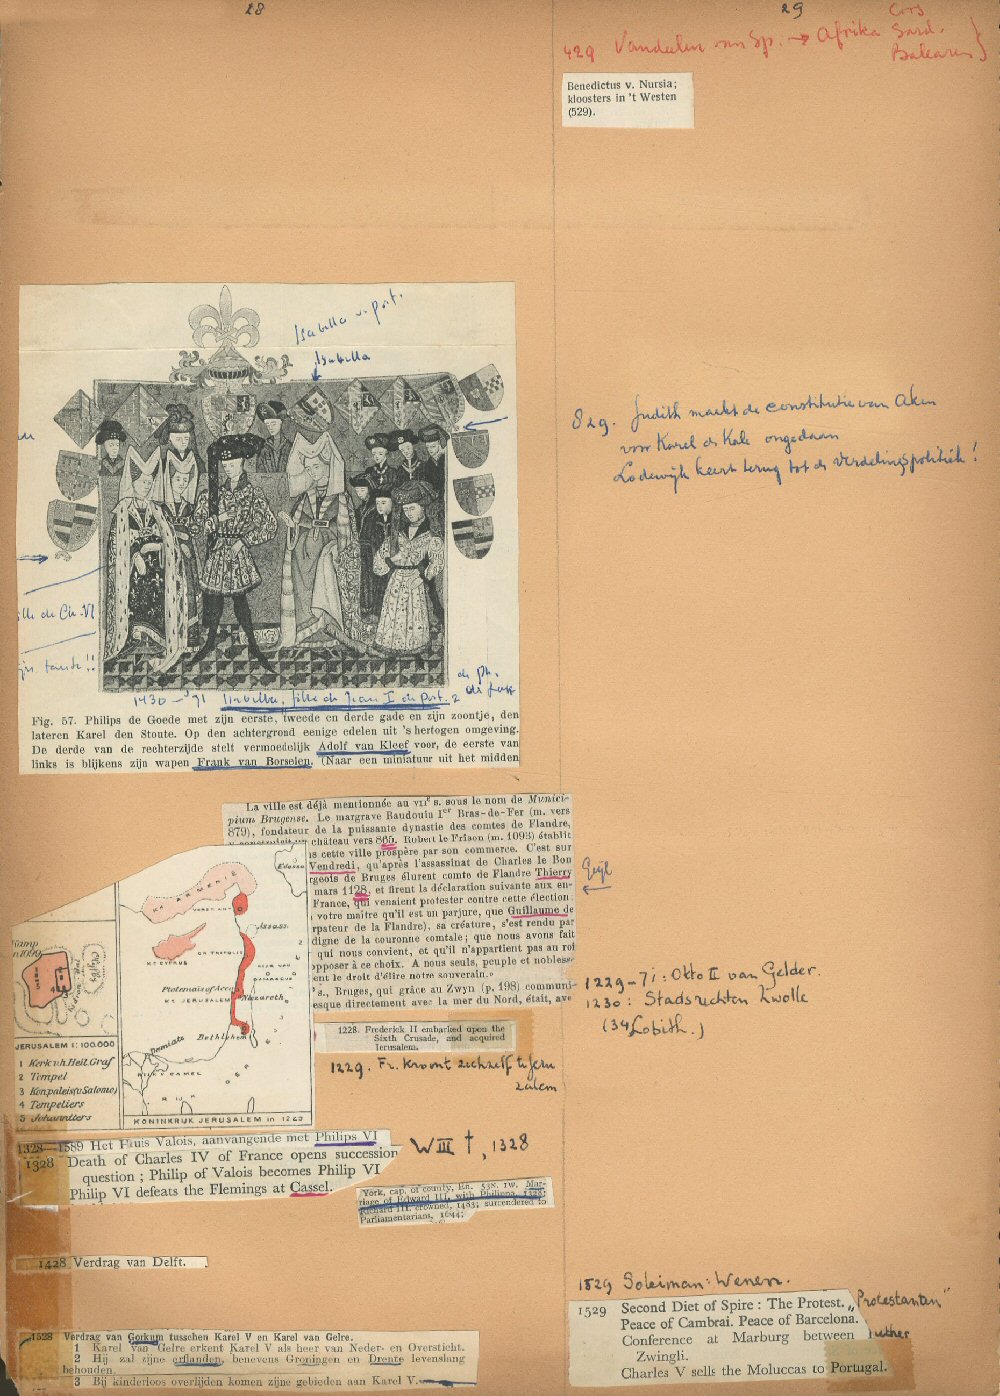 28
29
429 Vandalen van Sp. → Afrika
Cors
Sard.
Balearen
Benedictus v. Nursia;
kloosters in 't Westen
(529).
Isabella v. Port.
Isabella
829. Judith maakt de constitutie van Aken
voor Karel de Kale ongedaan
Lodewijk keert terug tot de verdelingspolitiek!
lle de Ch. VI
tante!!
1430-'71 Isabella, fille de Jean I de Port. 2
de Ph.
Fig. 57. Philips de Goede met zijn eerste, tweede en derde gade en zijn zoontje, den
lateren Karel den Stoute. Op den achtergrond eenige edelen uit 's hertogen omgeving.
De derde van de rechterzijde stelt vermoedelijk Adolf van Kleef voor, de eerste van
links is blijkens zijn wapen Frank van Borselen. (Naar een miniatuur uit het midden
La ville est déjà mentionnée au VIIe s. sous le nom de Munici-
pium Brugense. Le margrave Baudouin Ier Bras-de-Fer (m. vers
879), fondateur de la puissante dynastie des comtes de Flandre,
y construisit un château vers 865. Robert le Frison (m. 1093) établit
s cette ville prospère par son commerce. C'est sur
Vendredi, qu'après l'assassinat de Charles le Bon
rgeois de Bruges élurent comte de Flandre Thierry
mars 1128, et firent la déclaration suivante aux en-
France, qui venaient protester contre cette élection:
votre maître qu'il est un parjure, que Guillaume de
rpateur de la Flandre), sa créature, s'est rendu par
digne de la couronne comtale; que nous avons fait
qui nous convient, et qu'il n'appartient pas au roi
opposer à ce choix. A nous seuls, peuple et noblesse
ent le droit d'élire notre souverain.»
s., Bruges, qui grâce au Zwyn (p. 198) communi-
esque directement avec la mer du Nord, était, ave
Edessa
KL. ARMENIE
KR CYPRUS
Assass.
GR TRIPOLIS
DAMASCUS
Ptolemais of Acco
KR JERUSALEM
Nazareth
Damiate
Bethlehem
RIJK
KONINKRIJK JERUSALEM in 1263
Kamp
in 1099
JERUSALEM 1:100.000
1 Kerk v.h. Heil Graf
2 Tempel
3 Kon.paleis (v. Salomo)
4 Tempeliers
5 Johannieters
1229-71: Otto II van Gelder.
1230: Stadsrechten Zwolle
(34 Lobith.)
1228. Frederick II embarked upon the
Sixth Crusade, and acquired
Jerusalem.
1229. Fr. kroont zichzelf te Jeru
zalem
1328-1589 Het Huis Valois, aanvangende met Philips VI
1328 Death of Charles IV of France opens succession
question; Philip of Valois becomes Philip VI
Philip VI defeats the Flemings at Cassel.
W III †, 1328
York, cap. of county, En. 53N. 1W. Mar-
riage of Edward III. with Philippa, 1328;
Richard III. crowned, 1483; surrendered to
Parliamentarians, 1644;
1428 Verdrag van Delft.
1528 Verdrag van Gorkum tusschen Karel V en Karel van Gelre.
1 Karel van Gelre erkent Karel V als heer van Neder- en Oversticht.
2 Hij zal zijne erflanden, benevens Groningen en Drente levenslang
behouden.
3 Bij kinderloos overlijden komen zijne gebieden aan Karel V.
1529 Soleiman: Wenen.
1529 Second Diet of Spire: The Protest. „Protestanten"
Peace of Cambrai. Peace of Barcelona.
Conference at Marburg between Luther
Zwingli.
Charles V sells the Moluccas to Portugal.